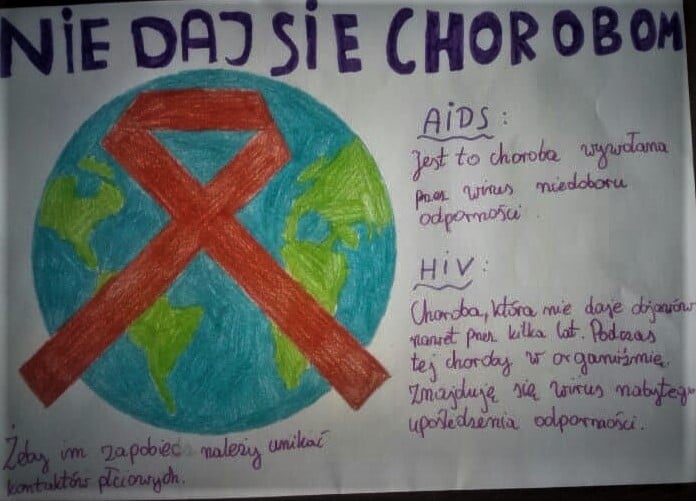 NIE DAJ SIE CHOROBOM
AiDS:
Jest to choroba wywołana
przez wirus niedoboru
odporności.
HiV:
Choroba, która nie daje objawów
nawet przez kilka lat. Podczas
tej choroby w organiźmie
znajduję się wirus nabytego
upośledzenia odporności.
Żeby im zapobiec należy unikać
kontaktów płciowych.